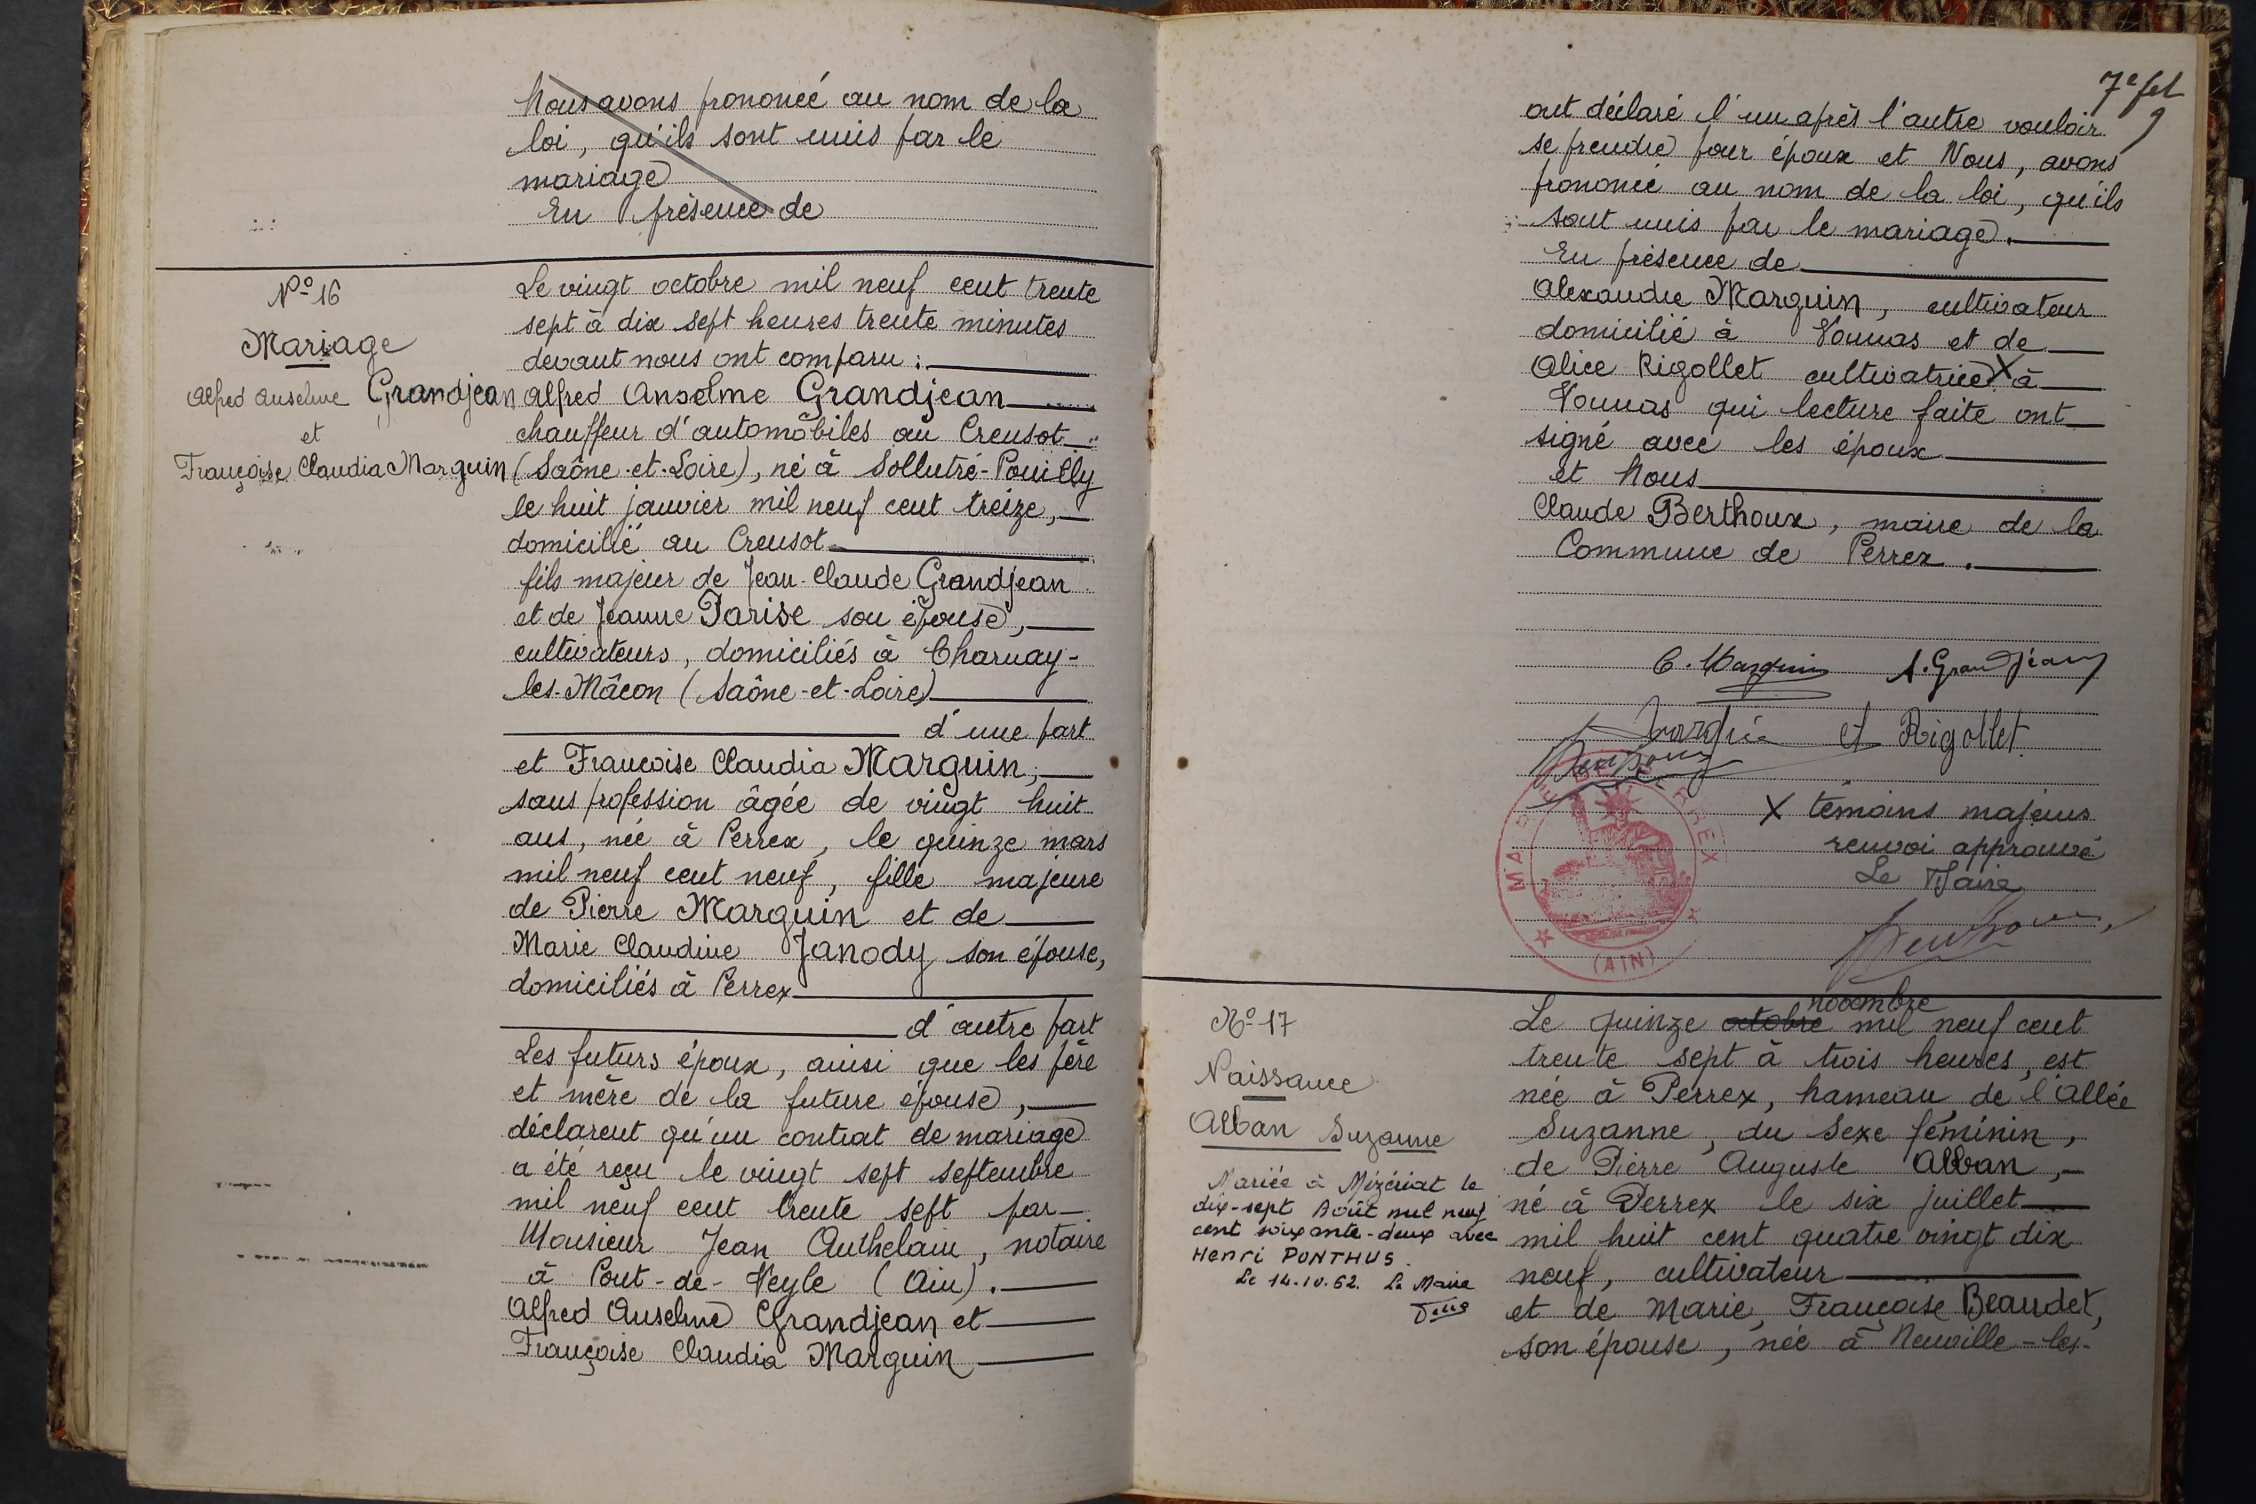 Nous avons prononcé au nom de la
loi, qu'ils sont unis par le
mariage
En présence de
Nº 16
Mariage
Alfred Anselme Grandjean
et
Françoise Claudia Marguin
Le vingt octobre mil neuf cent trente
sept à dix sept heures trente minutes
devant nous ont comparu :
Alfred Anselme Grandjean
chauffeur d'automobiles au Creusot
(Saône-et-Loire), né à Sollutré-Pouilly
le huit janvier mil neuf cent treize,
domicilié au Creusot
fils majeur de Jean-Claude Grandjean
et de Jeanne Parise son épouse,
cultivateurs, domiciliés à Charnay-
les-Mâcon (Saône-et-Loire)
d'une part
et Francoise Claudia Marguin,
sans profession âgée de vingt huit
ans, née à Perrex, le quinze mars
mil neuf cent neuf, fille majeure
de Pierre Marguin et de
Marie Claudine Janody son épouse,
domiciliés à Perrex
d'autre part
Les futurs époux, ainsi que les père
et mère de la future épouse,
déclarent qu'un contrat de mariage
a été reçu le vingt sept septembre
mil neuf cent trente sept par
Monsieur Jean Authelain, notaire
à Pont-de-Veyle (Ain).
Alfred Anselme Grandjean et
Françoise Claudia Marguin
7e fet
ont déclaré l'un après l'autre vouloir
se prendre pour époux et Nous, avons
prononcé au nom de la loi, qu'ils
sont unis par le mariage.
En présence de
Alexandre Marguin, cultivateur
domicilié à Vonnas et de
Alice Rigollet cultivatrice X à
Vonnas qui lecture faite ont
signé avec les époux
et Nous
Claude Berthoux, maire de la
Commune de Perrex.
C. Marguin A. Grandjean
Marguin et Rigollet
Berthoux
MAIRIE DE PERREX
(AIN)
X témoins majeurs
renvoi approuvé
Le Maire
Berthoux
Nº 17
Naissance
Alban Suzanne
Mariée à Mézériat le
dix-sept Août mil neuf
cent soixante-deux avec
Henri PONTHUS.
Le 14.10.62. Le Maire
novembre
Le quinze octobre mil neuf cent
trente sept à trois heures, est
née à Perrex, hameau de l'Allée
Suzanne, du sexe féminin,
de Pierre Auguste Alban,
né à Perrex le six juillet
mil huit cent quatre vingt dix
neuf, cultivateur
et de Marie, Françoise Beaudet,
son épouse, née à Neuville-les-